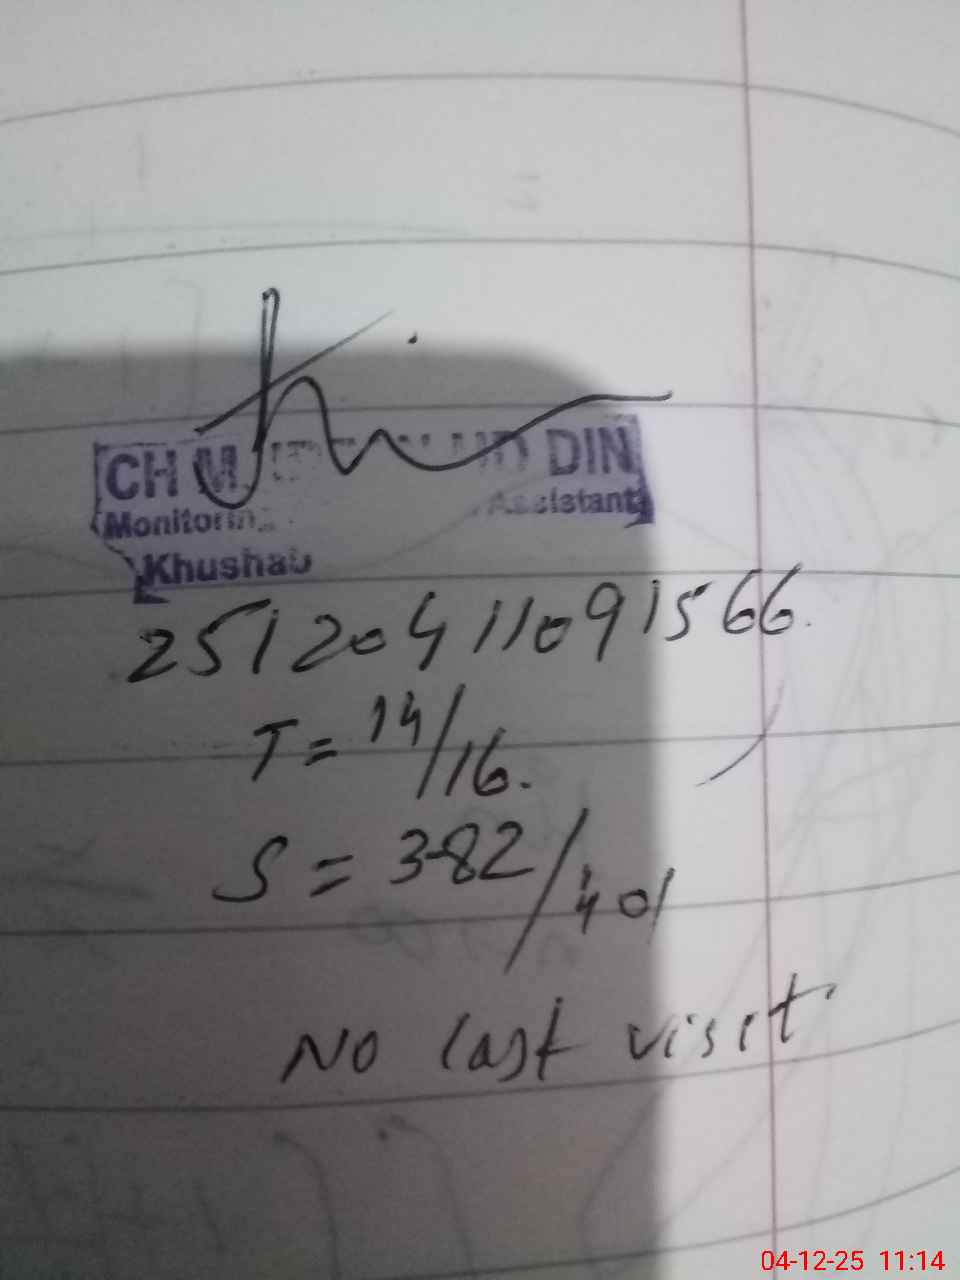 CH M UD DIN
Monitorin Assistant
Khushab
25120411091566.
T = 14/16.
S = 382/401
No last visit
04-12-25 11:14